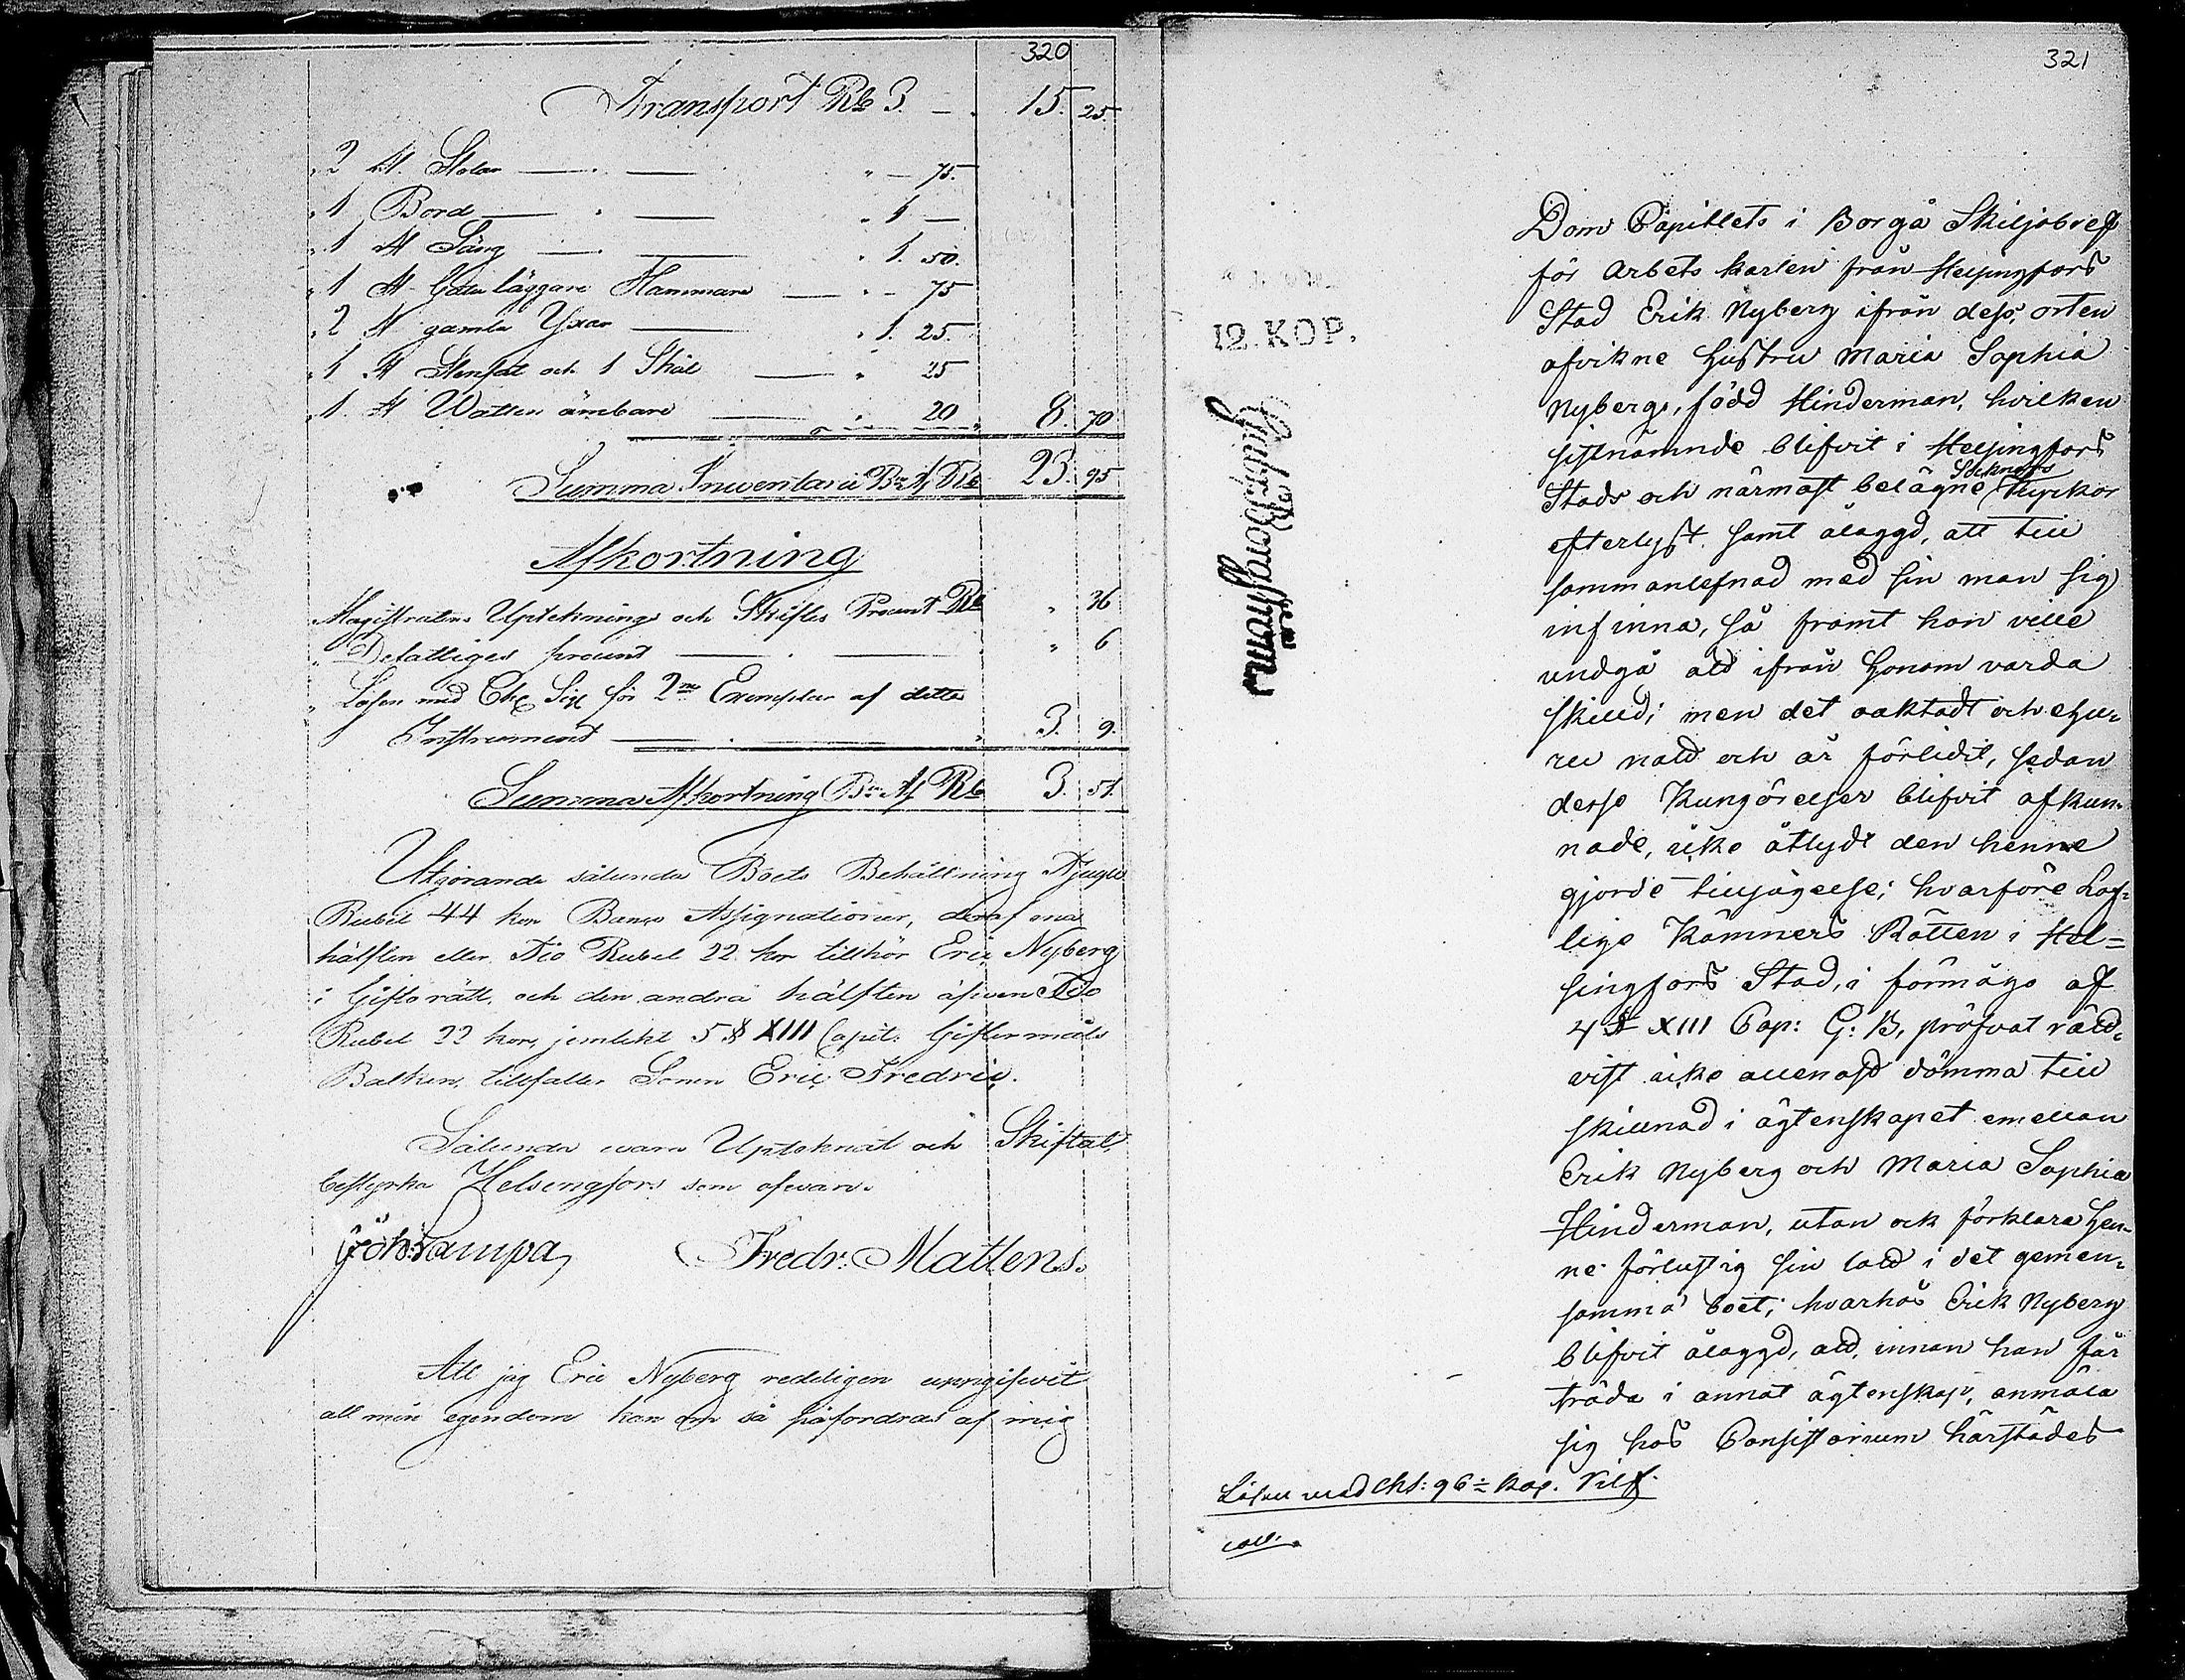 320
Transport Rb 3. — . 15. 25.
2 st. Stolar — . — " — 75.
1 Bord — . — " 1 —
1 st Säng — . — " 1. 50.
1 st Gatuläggare Hammare — " — 75
2 st gamla Yxor — " 1. 25.
1 st Stenfat och 1 Skål — " 25
1. st Watten ämbare — " 20 8. 70
Summa Inventarii Rb 23. 95
Afkortning
Magistratens Uptekning och Skiftes Procent Rb " 36
De fattiges procent — . — " 6
Lösen med Ch Sig för 2ne Exemplar af detta
Instrument — . — 3. 9.
Summa Afkortning Rb 3. 51.
Utgörande sålunda Boets Behållning Tjugu
Rubel 44 kop Banco Assignationer, deraf ena
hälften eller Tio Rubel 22 kop tillhör Eric Nyberg
i Giftorätt, och den andra hälften äfwen Tio
Rubel 22 kop, jemlikt 5 § XIII Capit. Giftermåls
Balken, tillfaller Sonen Eric Fredric.
Sålunda wara Upteknat och Skiftat,
bestyrka Helsingfors som ofwan.
Joh: Lampa Fredr: Mattens.
Att jag Eric Nyberg redeligen uppgifwit
all min egendom kan om så påfordras af mig
321
12. KOP.
Dom Capitlets i Borgå Skiljobref
för Arbets karlen från Helsingfors
Stad Erik Nyberg ifrån dess, orten
afvikne hustru Maria Sophia
Nyberg, född Hinderman, hvilken
sistnämnde blifvit i Helsingfors
Stads och närmast belägne Socknars Kyrkor
efterlyst samt ålaggd, att till
sammanlefnad med sin man sig
infinna, så framt hon ville
undgå att ifrån honom varda
skilld; men det oaktadt och ehu-
ru natt och år förlidit, sedan
desse Kungörelser blifvit afkun-
nade, icke åtlydt den henne
gjorde tillsägelse; hvarföre Lof-
lige Kämners Rätten i Hel=
singfors Stad, i förmågo af
4 § XIII Cap: G: B, pröfvat rätt-
vist icke allenast dömma till
skillnad i ägtenskapet emellan
Erik Nyberg och Maria Sophia
Hinderman, utan ock förklara hen-
ne förlustig sin lott i det gemen-
samma boet; hvarhos Erik Nyberg
blifvit ålaggd, att, innan han får
träda i annat ägtenskap, anmäla
sig hos Consistorium härstädes
Lösen med Chs: 96 kop. Silf.
coll.